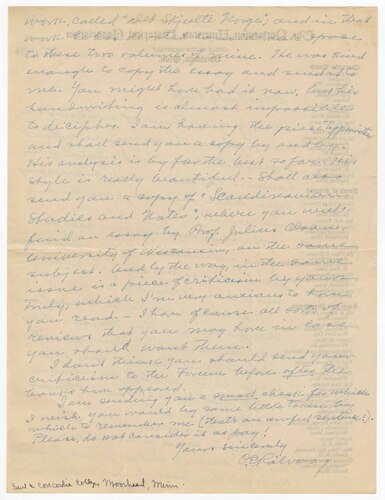 work, called "Det Skjulte Norge", and in that
work
to these two volumes of mine. He was kind
enough to copy the essay and send it to
me. You might have had it now, but his
handwriting is almost impossible
to decipher. I am having the piece typewritten
and shall send you a copy by and by.
His analysis is by far the best so far. His
style is really beautiful. -- Shall also
send you a copy of "Scandinavian
Studies and Notes", where you will
find an essay by Prof. Julius Olson,
University of Wisconsin, on the same
subject. And by the way, in the same
issue is a piece of criticism by yours
truly, which I'm very anxious to have
you read. -- I have of course all sorts of
reviews that you may have in case
you should want them.
I don't think you should send your
criticism to the Forum before after the
book has appeared.
I am sending you a small check for which
I wish you would buy some little token by
which to remember me (that's an awful sentence!).
Please, do not consider it as pay!
Yours sincerely
O. E. Rölvaag
Sent to Concordia College, Moorhead, Minn.